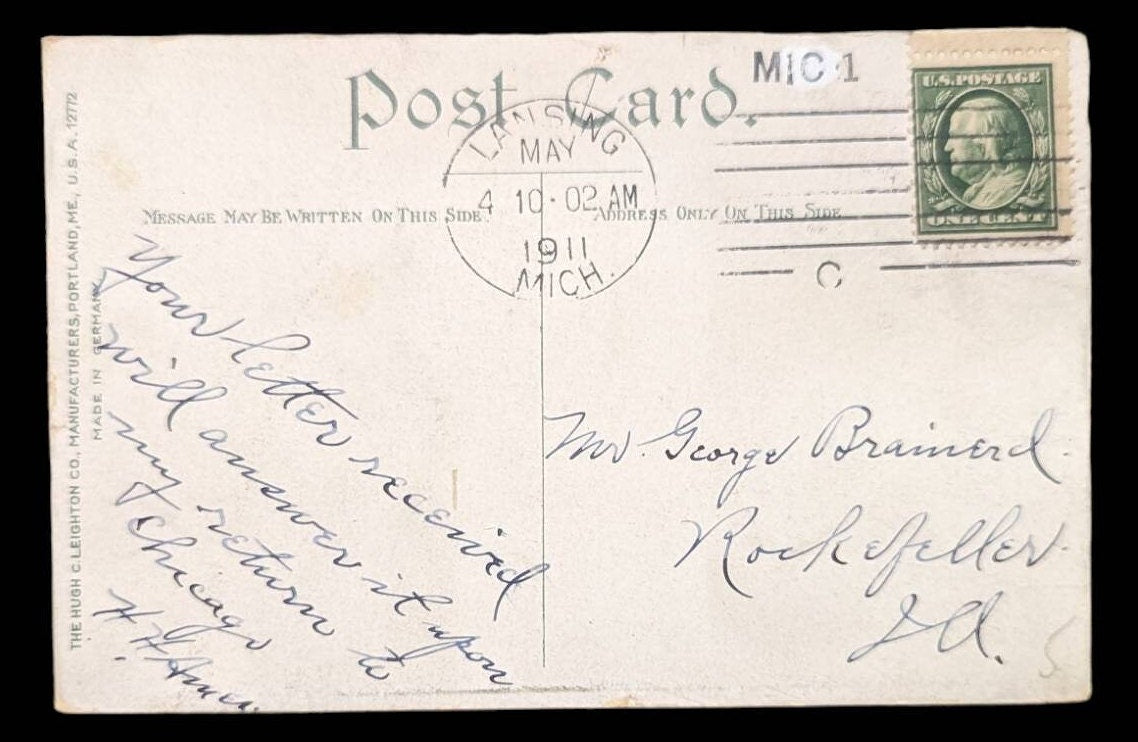 Post Card.
MIC 1
U.S. POSTAGE
ONE CENT
LANSING
MAY
4 10·02 AM
1911
MICH.
C
MESSAGE MAY BE WRITTEN ON THIS SIDE.
ADDRESS ONLY ON THIS SIDE
THE HUGH C. LEIGHTON CO., MANUFACTURERS, PORTLAND, ME., U.S.A. 12772
MADE IN GERMANY
Your letter received
will answer it upon
my return to
Chicago
H. H.
Mr. George Brainerd.
Rockefeller.
Ill.
5